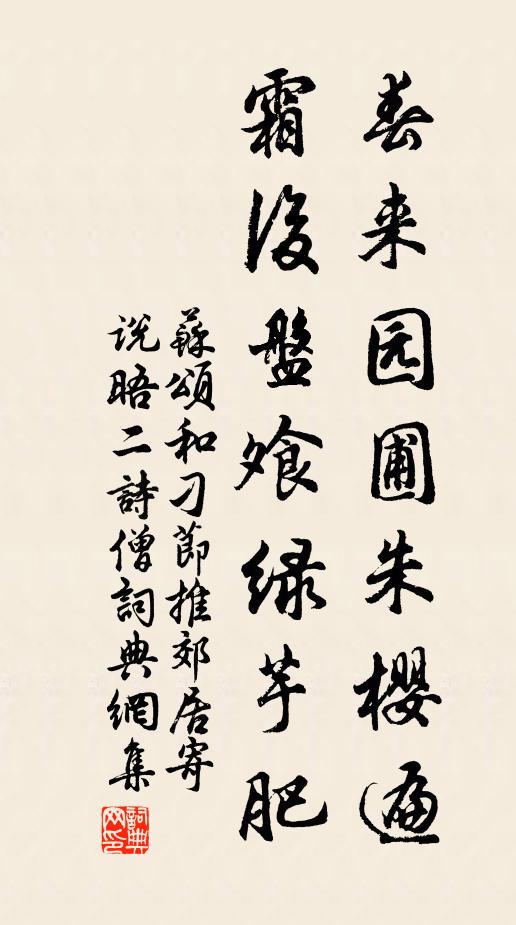 春来园圃朱樱遍
霜後盤飧绿芋肥
蘇頌和刁節推郊居寄
说晤二詩僧詞典網集
詞典網印